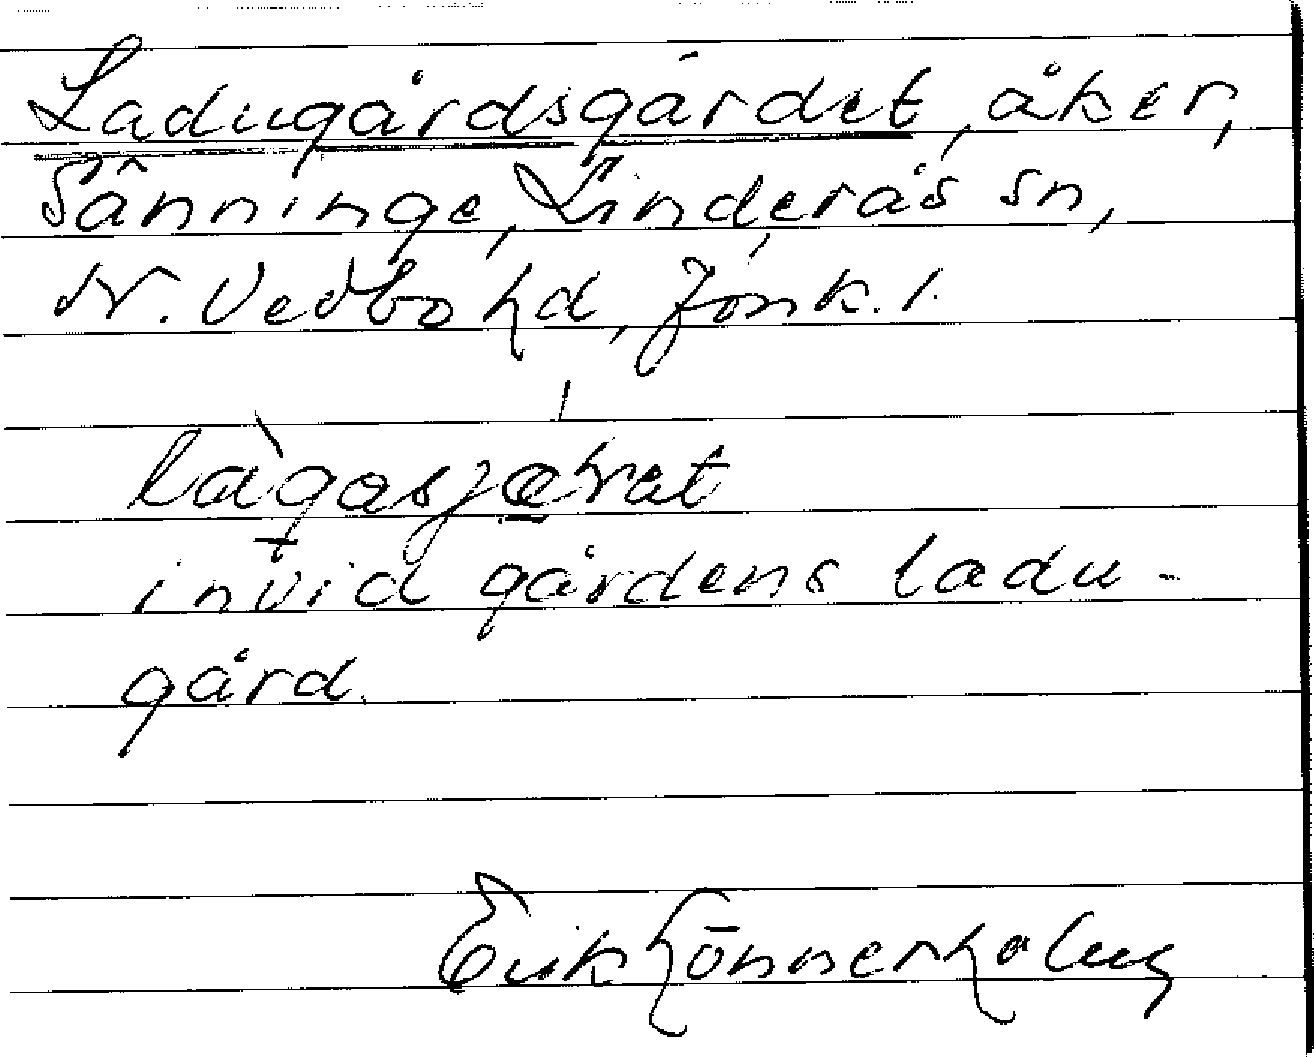 Ladugårdsgärdet, åker,
Sänninge, Linderås sn,
N. Vedbo hd, Jönk. l.
invid gårdens ladu-
gård.
Erik Lönnerholm